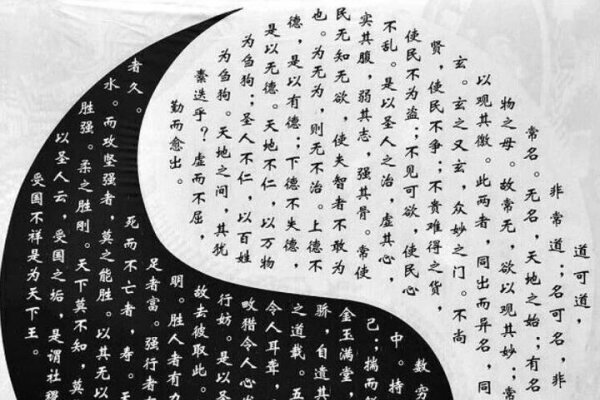 道可道，
非常道；名可名，非
常名。无名，天地之始；有名
物之母。故常无，欲以观其妙；常
以观其徼。此两者，同出而异名，同
玄。玄之又玄，众妙之门。不尚
贤，使民不争；不贵难得之货，
使民不为盗；不见可欲，使民心
不乱。是以圣人之治，虚其心，
实其腹，弱其志，强其骨。常使
民无知无欲，使失智者不敢为
也。为无为，则无不治。上德不
德，是以有德；下德不失德，
是以无德。天地不仁，以万物
为刍狗；圣人不仁，以百姓
为刍狗。天地之间，其犹
橐迭乎？虚而不屈，
勤而愈出。
数穷
中。持
己；揣而
金玉满堂，
骄，自遗其
之道载。五
令人耳聋，
畋猎令人心
行妨。是以圣
故去彼取此。
明。胜人者有
足者富。强行者
者久。死而不亡者，寿。天
水。而攻坚强者，莫之能胜。以其无以
胜强。柔之胜刚。天下莫不知，莫
以圣人云，受国之垢，是谓社稷
受国不祥是为天下王。